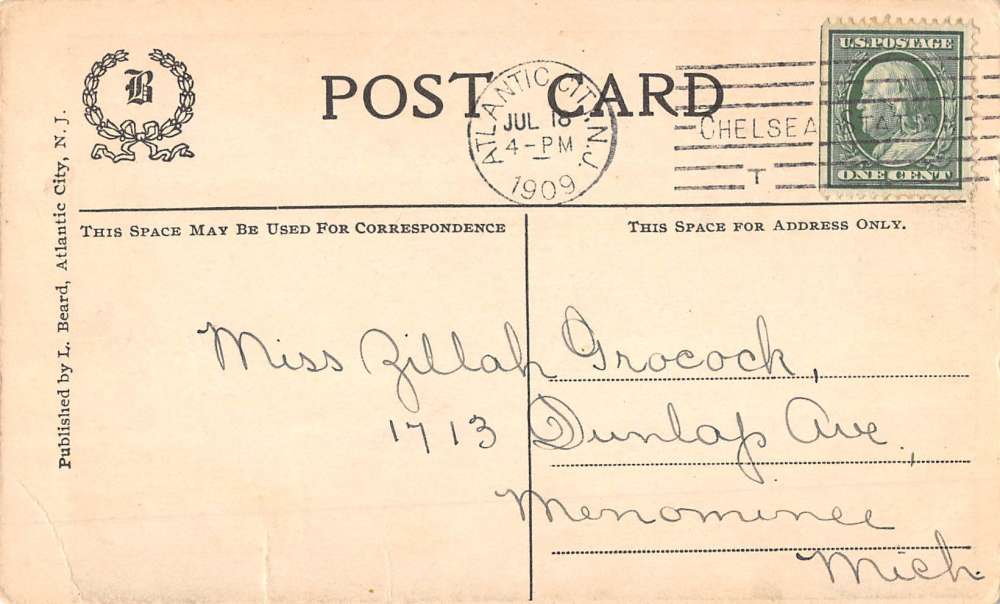 B
POST CARD
ATLANTIC CITY, N.J.
JUL 18
4-PM
1909
CHELSEA
T
U.S. POSTAGE
ONE CENT
THIS SPACE MAY BE USED FOR CORRESPONDENCE
THIS SPACE FOR ADDRESS ONLY.
Published by L. Beard, Atlantic City, N. J.
Miss Zillah Grocock,
1713 Dunlap Ave,
Menominee
Mich.